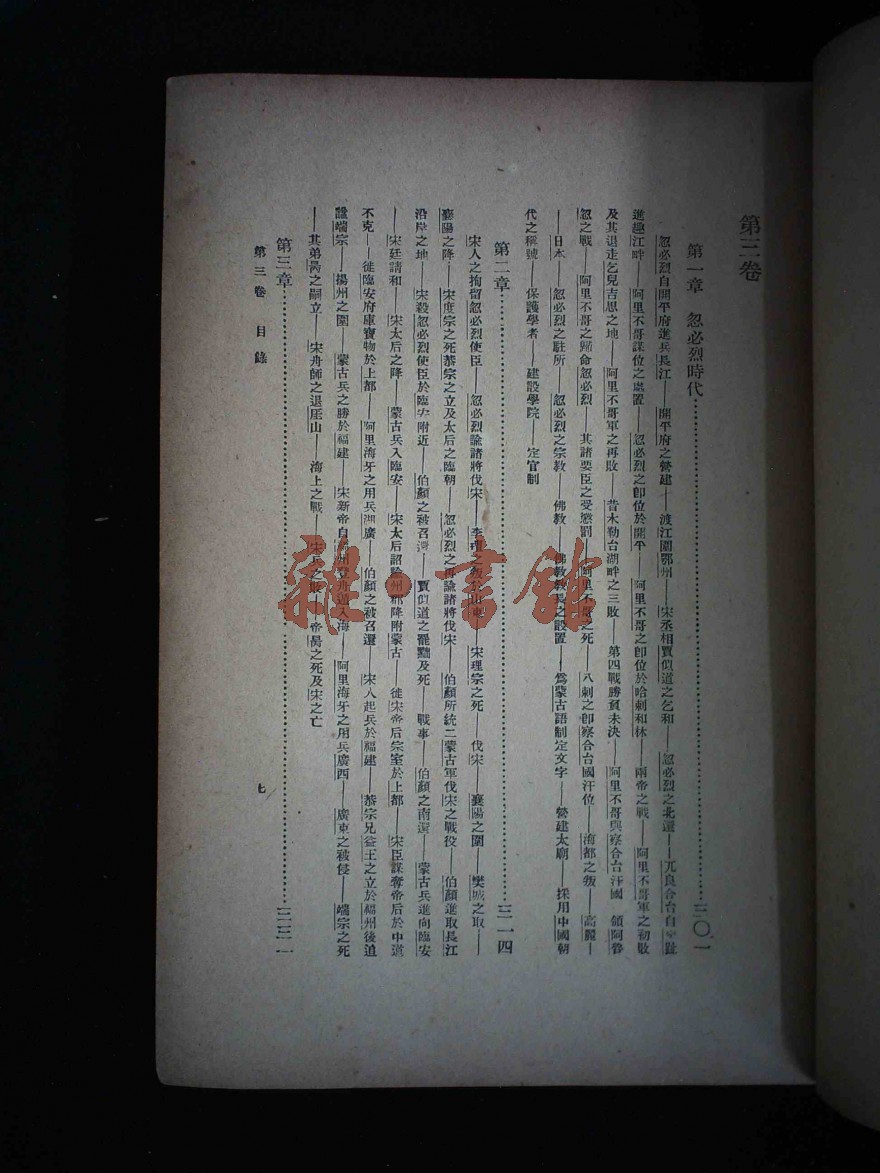 第三卷
第一章　忽必烈時代…………三〇一
忽必烈自開平府進兵長江——開平府之營建——渡江圍鄂州——宋丞相賈似道之乞和——忽必烈之北還——兀良合台自交趾
進趨江畔——阿里不哥謀位之處置——忽必烈之卽位於開平——阿里不哥之卽位於哈剌和林——兩帝之戰——阿里不哥軍之初敗
及其退走乞兒吉思之地——阿里不哥軍之再敗——昔木勒台湖畔之三敗——第四戰勝負未決——阿里不哥與察合台汗國　領阿魯
忽之戰——阿里不哥之歸命忽必烈——其諸要臣之受懲罰——阿里不哥之死——八剌之卽察合台國汗位——海都之叛——高麗——
日本——忽必烈之駐所——忽必烈之宗教——佛教——佛教教長之設置——爲蒙古語制定文字——營建太廟——採用中國朝
代之稱號——保護學者——建設學院——定官制
第二章…………三一四
宋人之拘留忽必烈使臣——忽必烈諭諸將伐宋——李璮之叛於山東——宋理宗之死——伐宋——襄陽之圍——樊城之取——
襄陽之降——宋度宗之死恭宗之立及太后之臨朝——忽必烈之再諭諸將伐宋——伯顏所統二蒙古軍伐宋之戰役——伯顏進取長江
沿岸之地——宋殺忽必烈使臣於臨安附近——伯顏之被召還——賈似道之罷黜及死——戰事——伯顏之南還——蒙古兵進向臨安
——宋廷請和——宋太后之降——蒙古兵入臨安——宋太后詔諭州郡降附蒙古——徙宋帝后宗室於上都——宋臣謀奪帝后於中道
不克——徙臨安府庫寶物於上都——阿里海牙之用兵湖廣——伯顏之被召還——宋人起兵於福建——恭宗兄益王之立於福州後追
諡端宗——揚州之圍——蒙古兵之勝於福建——宋新帝自福州登舟遁入海——阿里海牙之用兵廣西——廣東之被侵——端宗之死
——其弟昺之嗣立——宋舟師之退厓山——海上之戰——宋兵之敗——帝昺之死及宋之亡
第三章…………三三一
第三卷　目錄
七
雜·書館